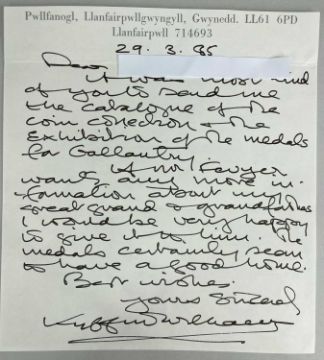 Pwllfanogl, Llanfairpwllgwyngyll, Gwynedd. LL61 6PD
Llanfairpwll 714693
29. 3. 85
Dear
It was most kind
of you to send me
the catalogue of the
coin collection & the
Exhibition of the medals
for Gallantry.
If Mr
wants any more in-
formation about my
great grand & grandfathers
I would be very happy
to give it to him. The
medals certainly seem
to have a good home.
Best wishes.
Yours
Kyffin Williams